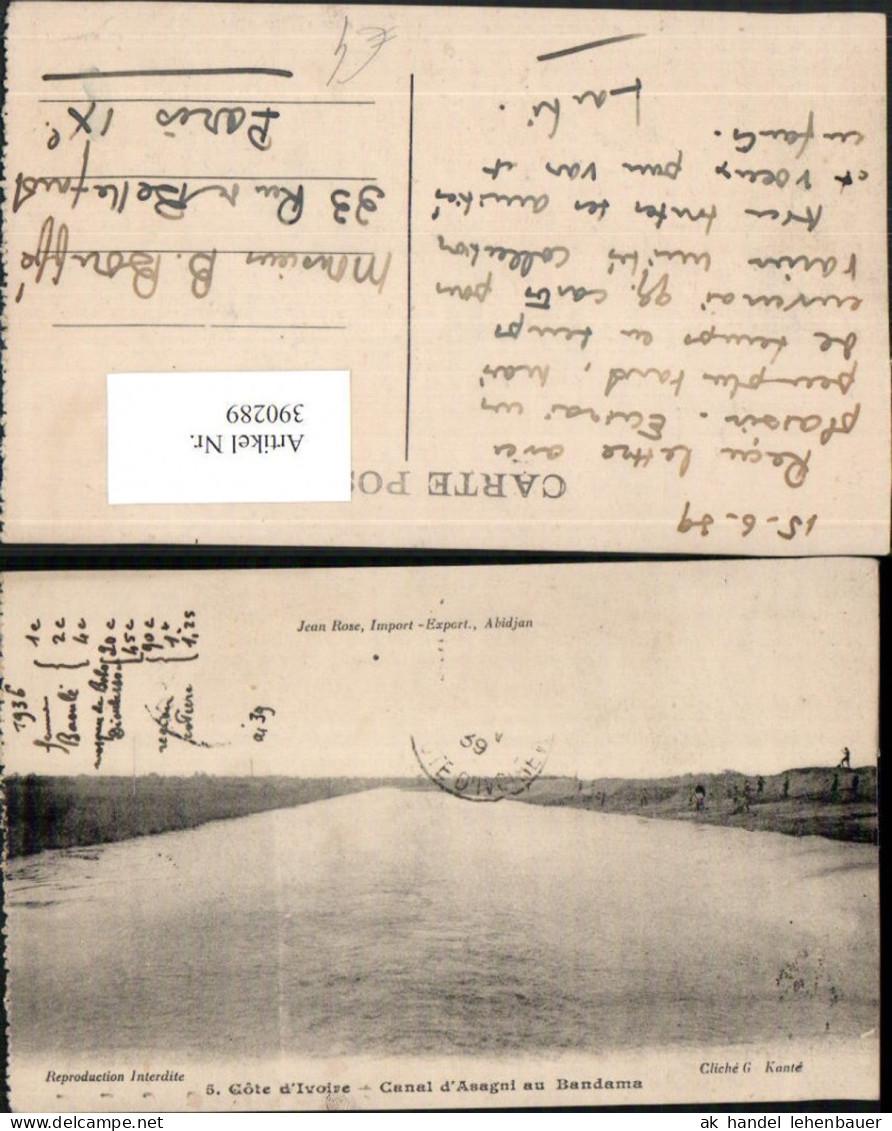 CARTE POS
15-6-39
Reçu lettre avec
plaisir. Ecrirai un
peu plus tard, mais
de temps en temps
enverrai qq. cartes pour
collection
toutes tes amitiés
et voeux pour vous et
enfants.
Monsieur B. Bouffé
33 Rue de Bellefond
Paris IXe
Artikel Nr.
390289
Jean Rose, Import-Export., Abidjan
1936
femme
Baoulé
1c
2c
4c
mosquée de Bobo
Dioulasso
20c
45c
90c
1,25
39
CÔTE D'IVOIRE
Reproduction Interdite
Cliché G Kanté
5. Côte d'Ivoire - Canal d'Asagni au Bandama
ak handel lehenbauer